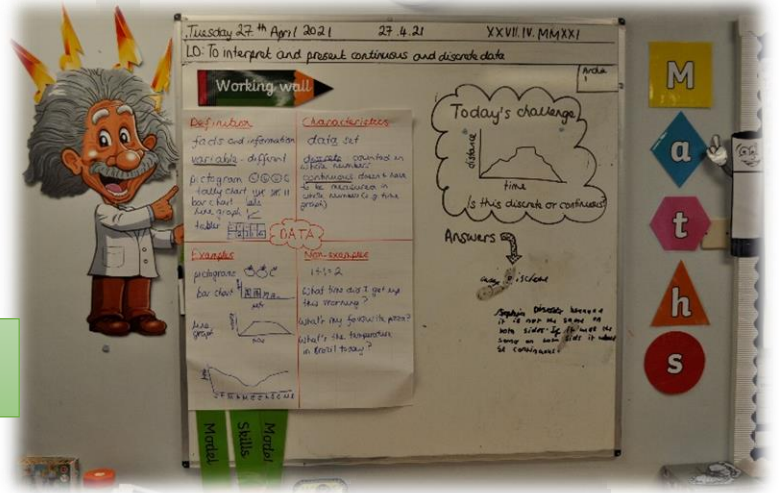 Tuesday 27.th April 2021 27.4.21 XXVII.IV.MMXXI
LO: To interpret and present continuous and discrete data
Working wall
Definition
facts and information
variable - different
pictogram
tally chart
bar chart
line graph
table
Characteristics
data set
discrete counted in
whole numbers
continuous doesn't have
to be measured in
whole numbers (e.g time
graph)
DATA
Examples
pictograms
bar chart
line
graph
Non-examples
1+1=2
What time did I get up
this morning?
What's my favourite pizza?
What's the temperature
in Brazil today?
Today's challenge
distance
time
Is this discrete or continuous
Answers
Discrete because
it is not the same on
both sides. If it was the
same on both sides it would
be continuous.
Model
Skills
Model
M
a
t
h
s